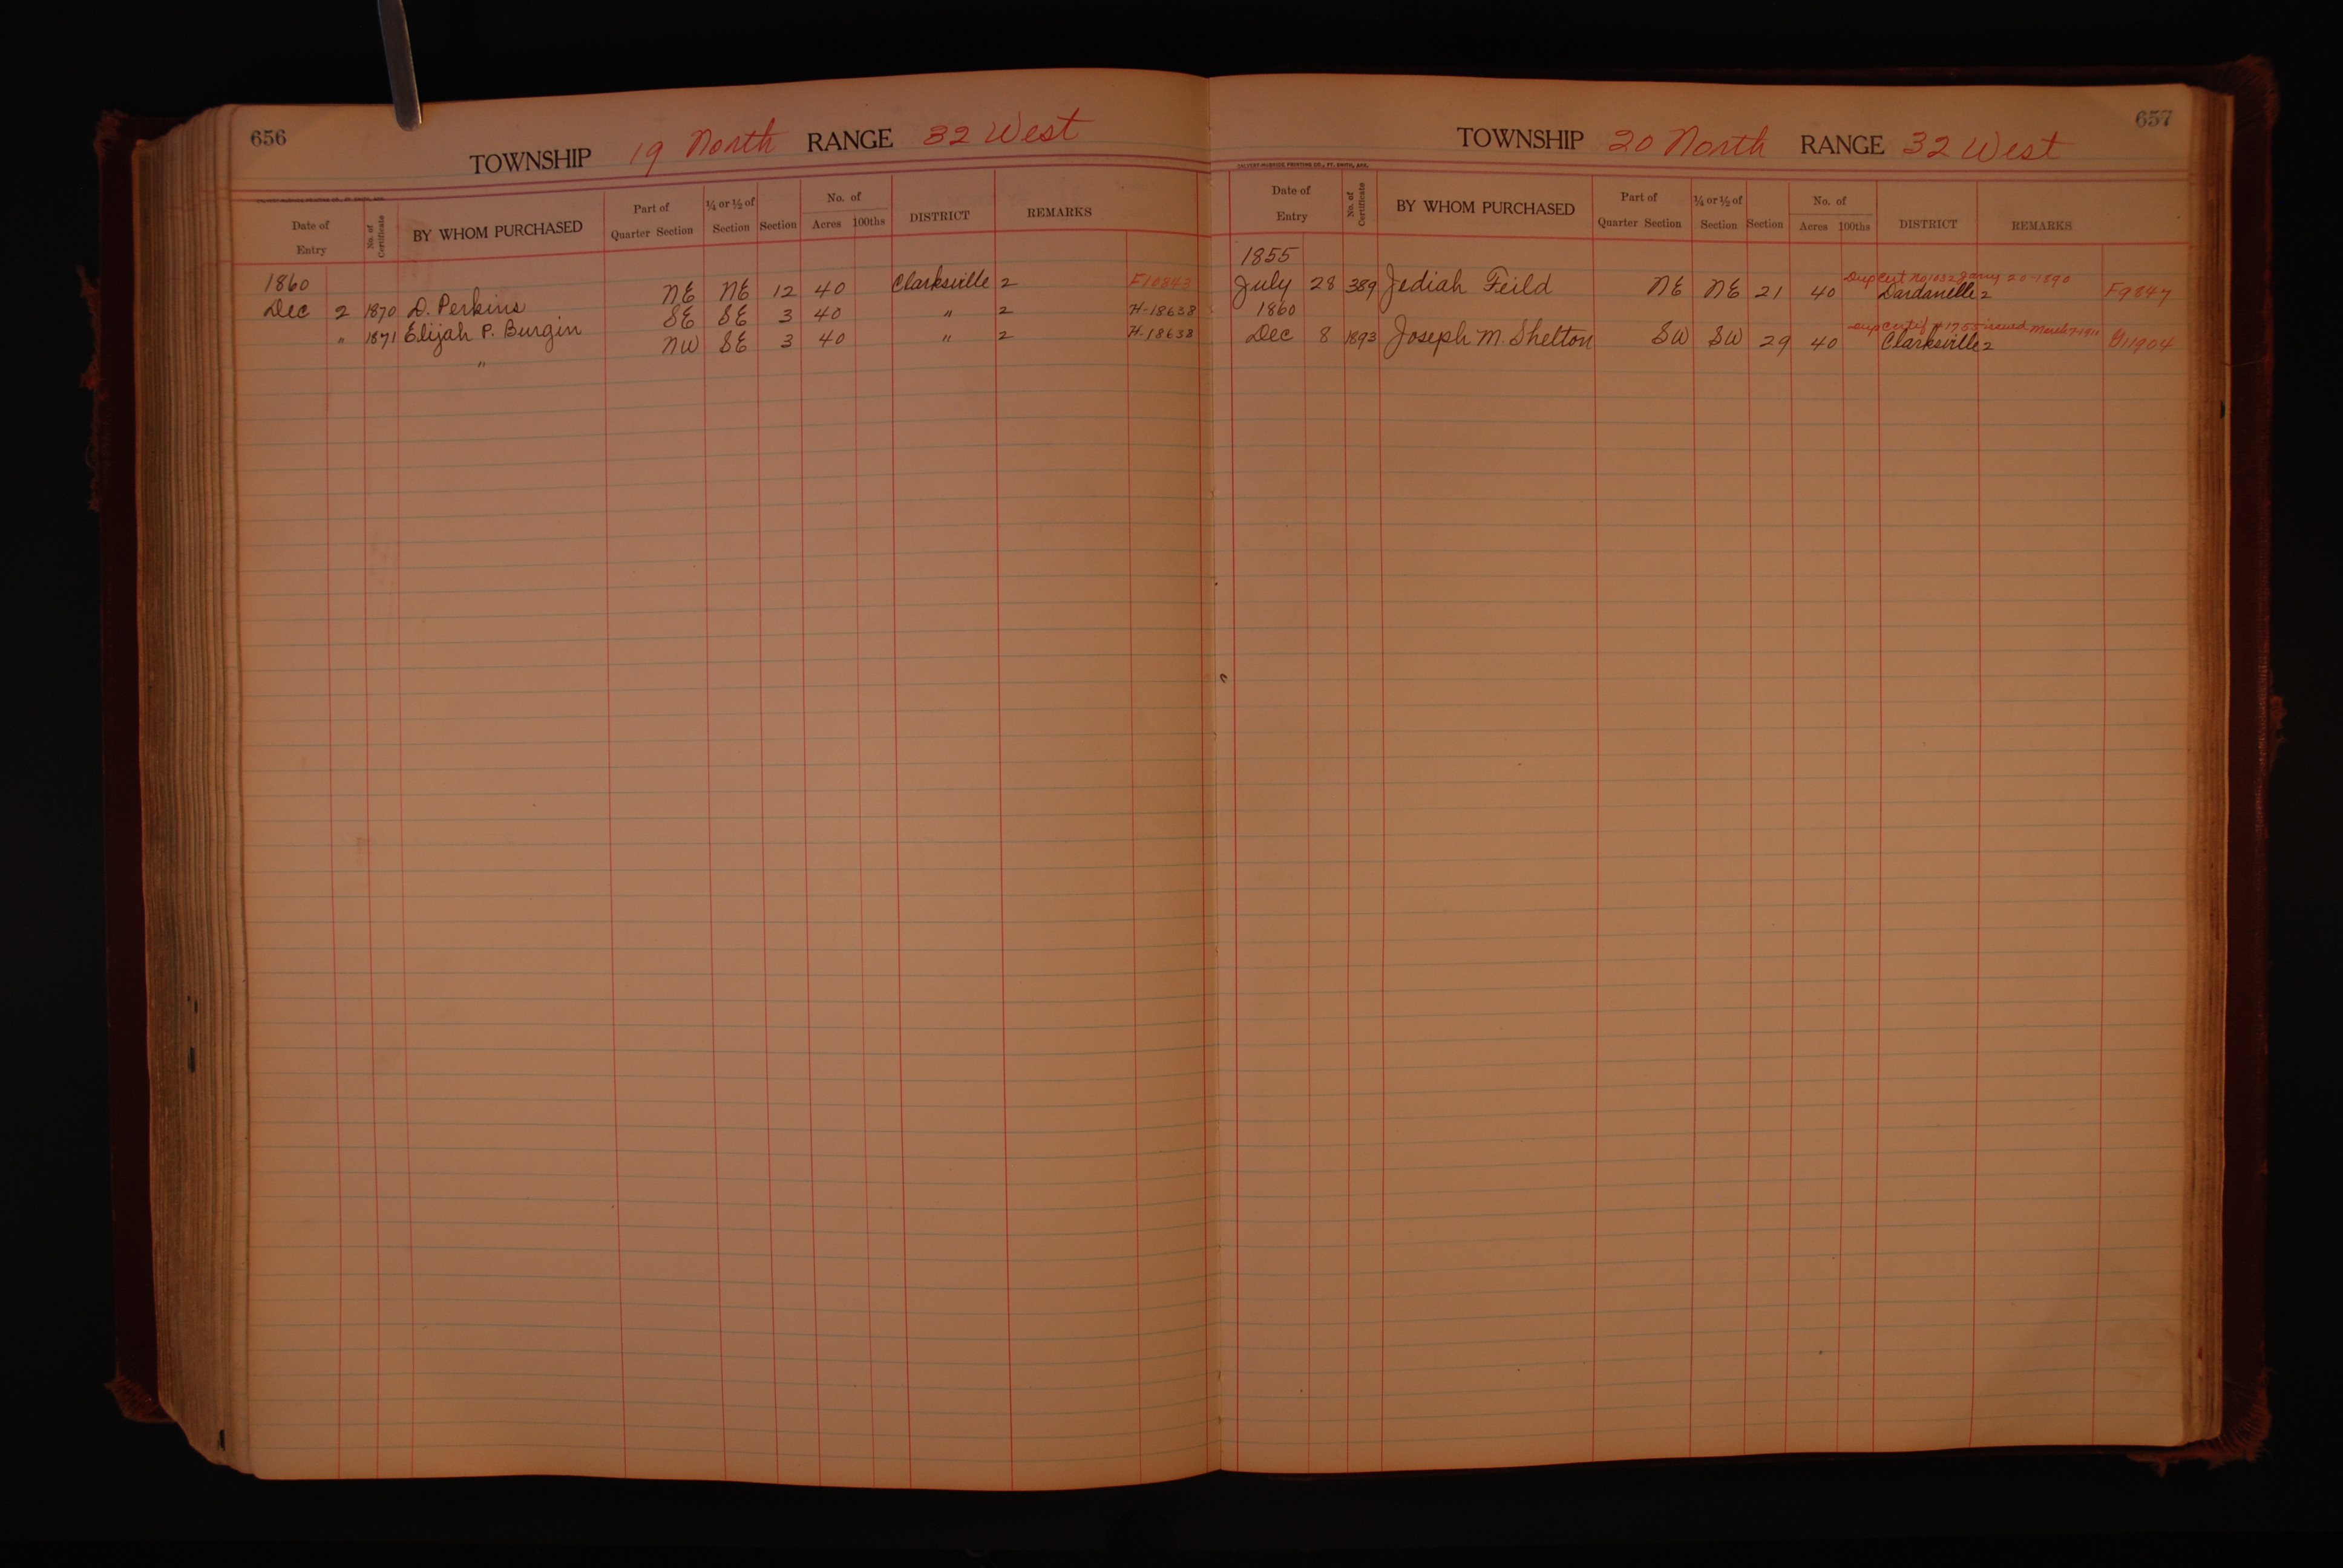 656
TOWNSHIP 19 North RANGE 32 West
CALVERT-MCBRIDE PRINTING CO., FT. SMITH, ARK.
Date of Entry No. of Certificate BY WHOM PURCHASED Part of Quarter Section ¼ or ½ of Section Section No. of Acres 100ths DISTRICT REMARKS
1860
Dec 2 1870 D. Perkins NE NE 12 40 Clarksville 2 F10843
" 1871 Elijah P. Burgin SE SE 3 40 " 2 H-18638
" NW SE 3 40 " 2 H-18638
657
TOWNSHIP 20 North RANGE 32 West
CALVERT-MCBRIDE PRINTING CO., FT. SMITH, ARK.
Date of Entry No. of Certificate BY WHOM PURCHASED Part of Quarter Section ¼ or ½ of Section Section No. of Acres 100ths DISTRICT REMARKS
1855
Dup Cert No 1032 Jany 20-1890
July 28 389 Jediah Feild NE NE 21 40 Dardanelle 2 F9847
1860
Dup Certif # 1755 issued March 7-1911
Dec 8 1893 Joseph M. Shelton SW SW 29 40 Clarksville 2 G11904